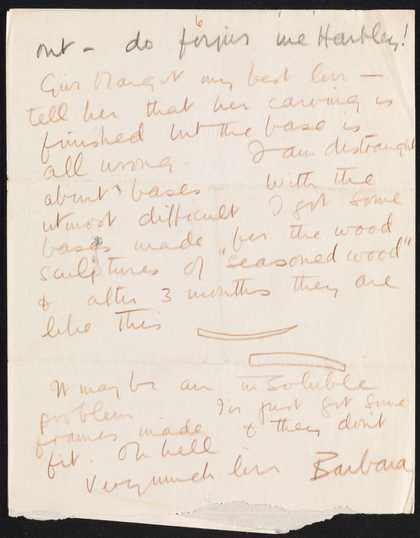 6
out – do forgive me Hartley!
Give Margot my best love –
tell her that her carving is
finished but the base is
all wrong. I am distraught
about bases with the
utmost difficult I got some
bases made for the wood
sculptures of "seasoned wood"
& after 3 months they are
like this
It may be an insoluble
problem I've just got some
frames made & they don't
fit. Oh hell
Very much love Barbara